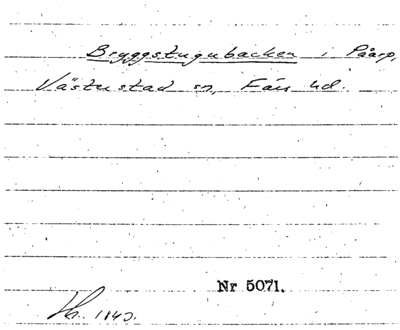 Bryggstugubacken i Påarp,
Västerstad sn, Färs hd.
Nr 5071.
1843.